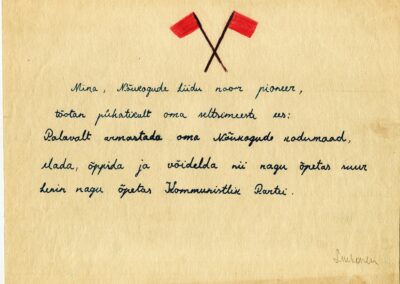 Mina, Nõukogude Liidu noor pioneer,
tõotan pühalikult oma seltsimeeste ees:
Palavalt armastada oma Nõukogude kodumaad,
elada, õppida ja võidelda nii nagu õpetas suur
Lenin nagu õpetas Kommunistlik Partei.